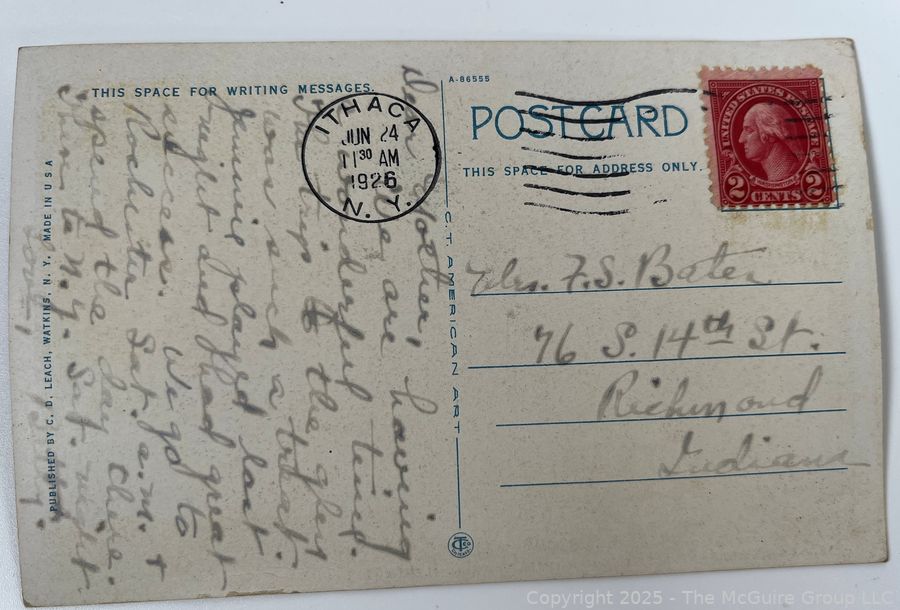 THIS SPACE FOR WRITING MESSAGES.
A-86555
POSTCARD
THIS SPACE FOR ADDRESS ONLY.
ITHACA
JUN 24
11 30 AM
1926
N. Y.
UNITED STATES POSTAGE
2 CENTS 2
Dear Mother,
We are having
a wonderful time.
The trip to the glen
was such a treat.
Jennie played last
night and had great
success. We go to
Rochester Sat. a.m. +
spend the day there.
Then to N.Y. Sat. night
Love,
PUBLISHED BY C. D. LEACH, WATKINS, N. Y. MADE IN U S A
C. T. AMERICAN ART
Mrs. F. S. Bates
76 S. 14th St.
Richmond
Indiana
Copyright © 2025 - The McGuire Group LLC